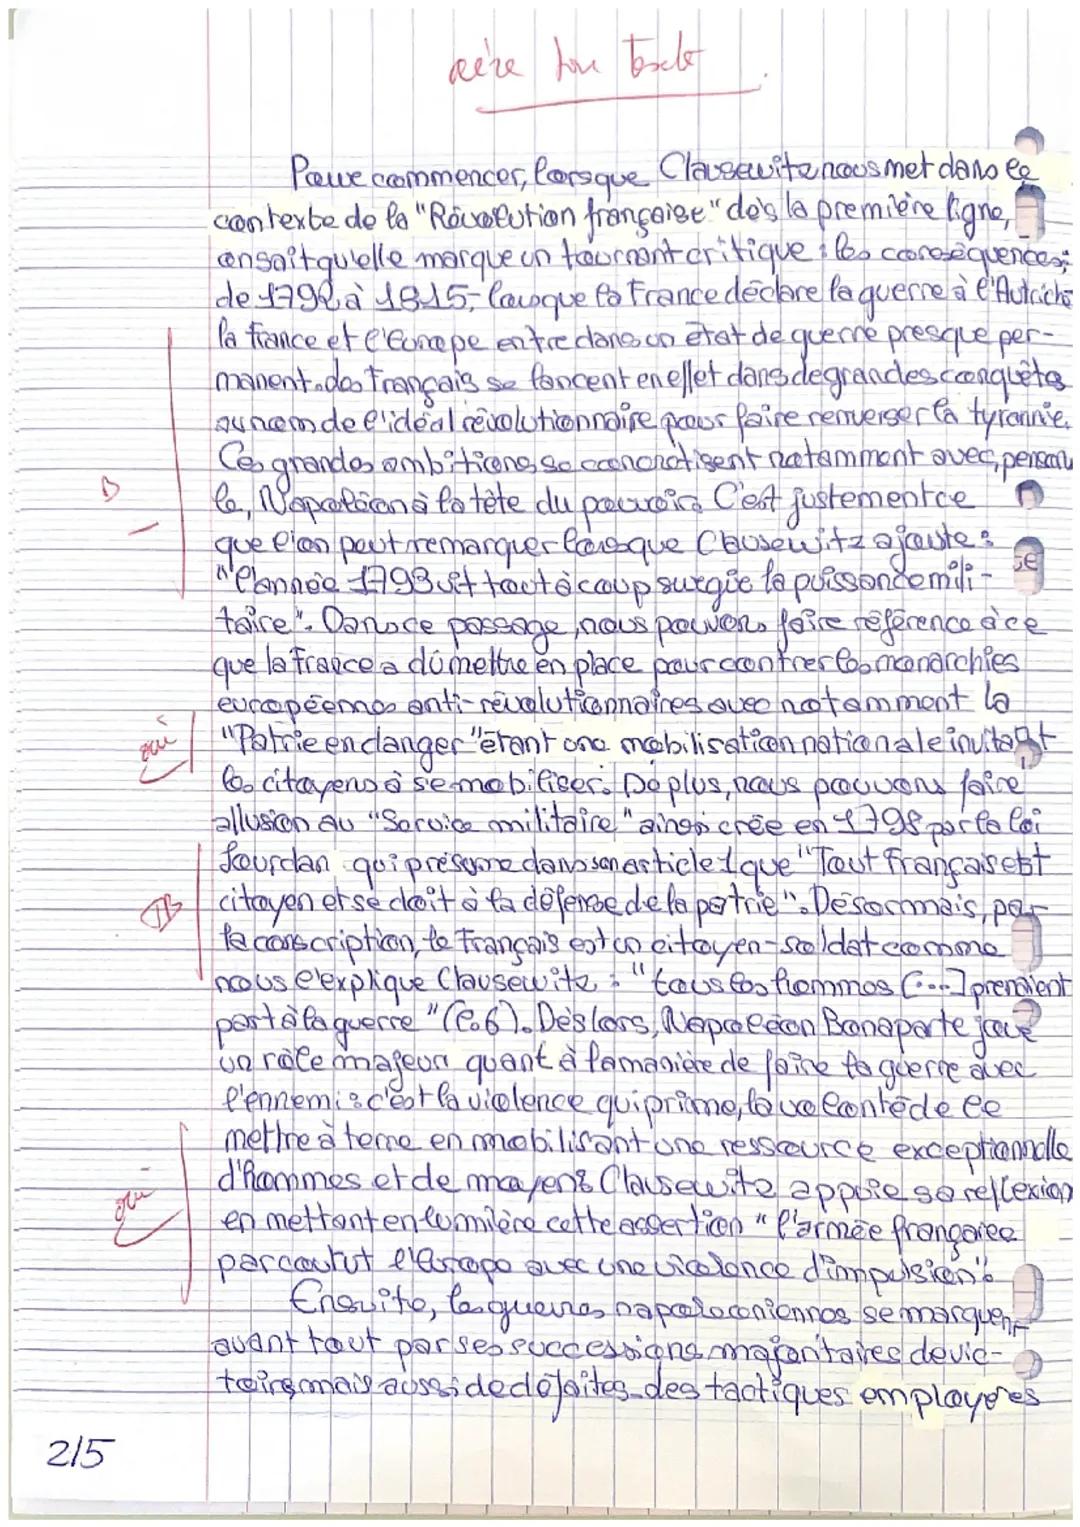 Pour commencer, lorsque Clausewitz nous met dans le
contexte de la "Révolution française" dès la première ligne,
on sait qu'elle marque un tournant critique : les conséquences;
de 1792 à 1815, lorsque la France déclare la guerre à l'Autriche
la france et l'Europe entre dans un état de guerre presque per-
manent. des Français se lancent en effet dans de grandes conquêtes
au nom de l'idéal révolutionnaire pour faire renverser la tyrannie.
Ces grandes ambitions se concrétisent notamment avec, pensons
B
le, Napoléon à la tête du pouvoir. C'est justement ce
que l'on peut remarquer lorsque Clausewitz ajoute :
"l'année 1793 vit tout à coup surgir la puissance mili-
taire". Dans ce passage, nous pouvons faire référence à ce
que la france a dû mettre en place pour contrer les monarchies
européennes anti-révolutionnaires avec notamment la
oui
"Patrie en danger" étant une mobilisation nationale invitant
les citoyens à se mobiliser. De plus, nous pouvons faire
allusion au "Service militaire" ainsi crée en 1798 par la loi
Jourdan qui présume dans son article 1 que "Tout français est
TB
citoyen et se doit à la défense de la patrie". Désormais, par
la conscription, le Français est un citoyen-soldat comme
nous l'explique Clausewitz : "tous les hommes [...] prenaient
part à la guerre" (l.6). Dès lors, Napoléon Bonaparte joue
un rôle majeur quant à la manière de faire la guerre avec
l'ennemi : c'est la violence qui prime, la volonté de le
mettre à terre en mobilisant une ressource exceptionnelle
oui
d'hommes et de moyens. Clausewitz appuie sa réflexion
en mettant en lumière cette assertion "l'armée française
parcourut l'Europe avec une violence d'impulsion".
Ensuite, les guerres napoléoniennes se marquent
avant tout par ses successions majoritaires de vic-
toires mais aussi de défaites des tactiques employées
2/5